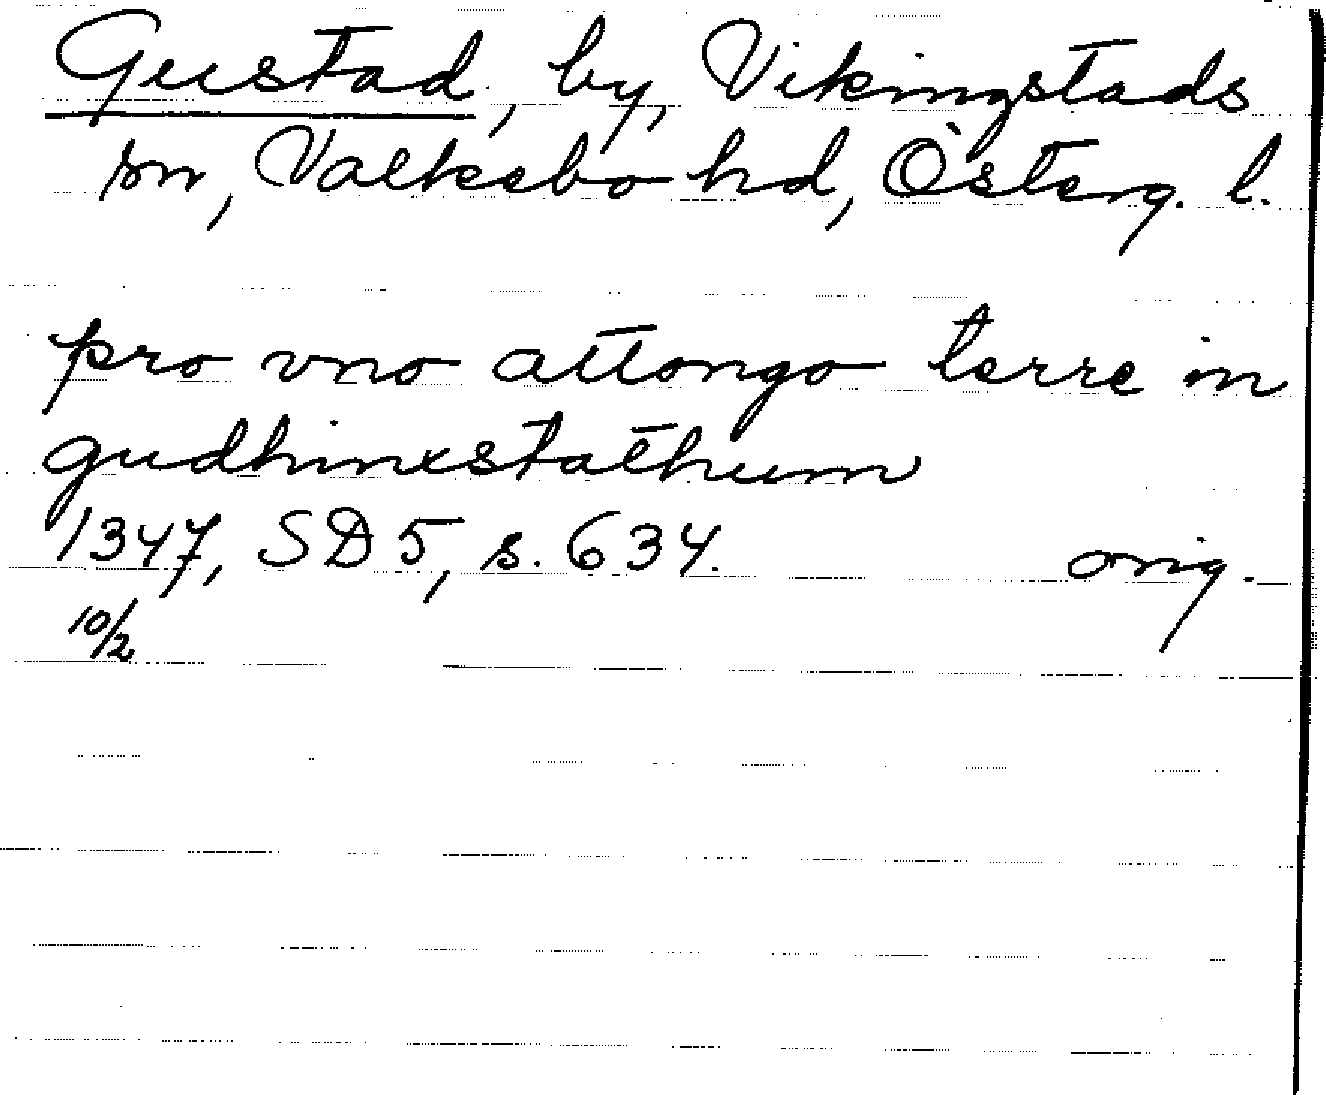 Gustad, by, Vikingstads
sn, Valkebo hd, Österg. l.
pro vno attongo terre in
gudhinxstathum
1347, SD 5, s. 634. orig.
10/2